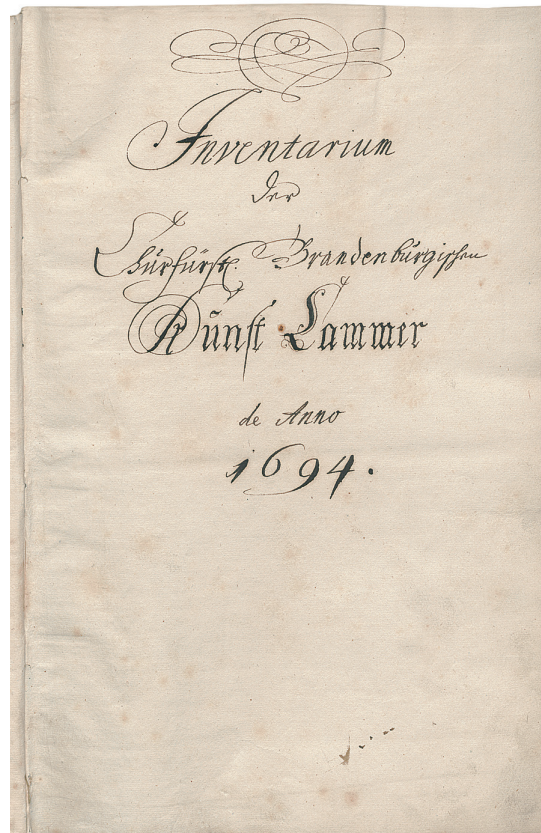 Inventarium
der
Churfürstl. Brandenburgischen
Kunst Cammer
de Anno
1694.